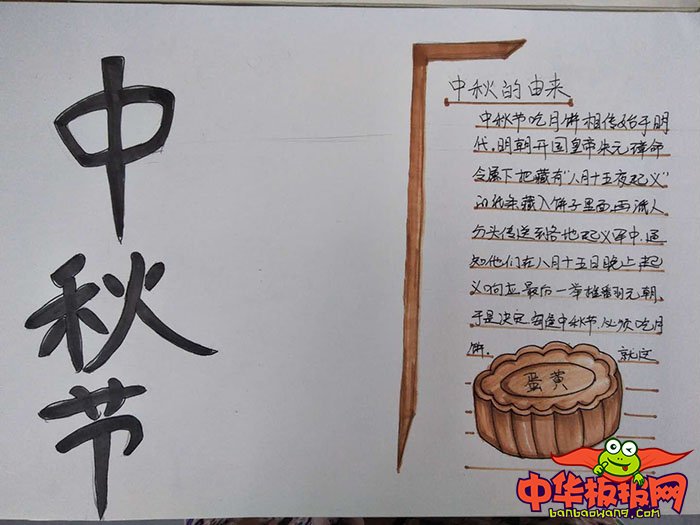 中
秋
节
中秋的由来
中秋节吃月饼相传始于明
代,明朝开国皇帝朱元璋命
令属下把藏有"八月十五夜起义"
的纸条藏入饼子里面,再派人
分头传送到各地起义军中,通
知他们在八月十五日晚上起
义响应,最后一举推翻元朝,
于是决定 中秋节 必须吃月
饼. 就这
蛋黄
中华板报网
banbaowang.com